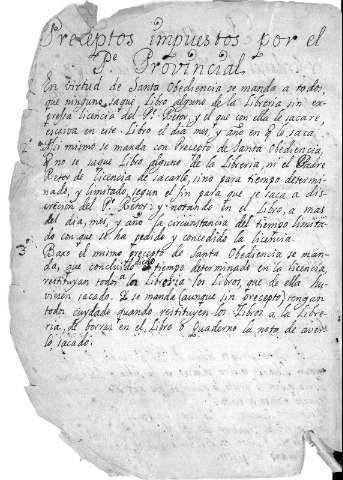 Preceptos impuestos por el
Pe. Provincial
En virtud de Santa Obediencia se manda a todos,
que ninguno saque Libro alguno de la Libreria sin ex-
pressa licencia del Pe. Retor, y el que con ella le sacare,
escriva en este Libro el dia, mes, y año en q lo saca.
2º Assi mismo se manda con Precepto de Santa Obediencia,
q no se saque Libro alguno de la Libreria, ni el Padre
Retor de licencia de sacarlo, sino para tiempo determi-
nado, y limitado, segun el fin para que se saca a dis-
crecion del Pe. Retor: y notando en el Libro, a mas
del dia, mes, y año la circunstancia del tiempo limita-
do con que se ha pedido y concedido la licencia.
3º Baxo el mismo precepto de Santa Obediencia se man-
da, que concluido dicho tiempo determinado en la licencia,
restituyan todos a la Libreria los Libros, que de ella hu-
viesen sacado. Y se manda (aunque sin precepto) tengan
todos cuydado quando restituyen los Libros a la Libre-
ria, de borrar en el Libro o Quaderno la nota de aver-
lo sacado.